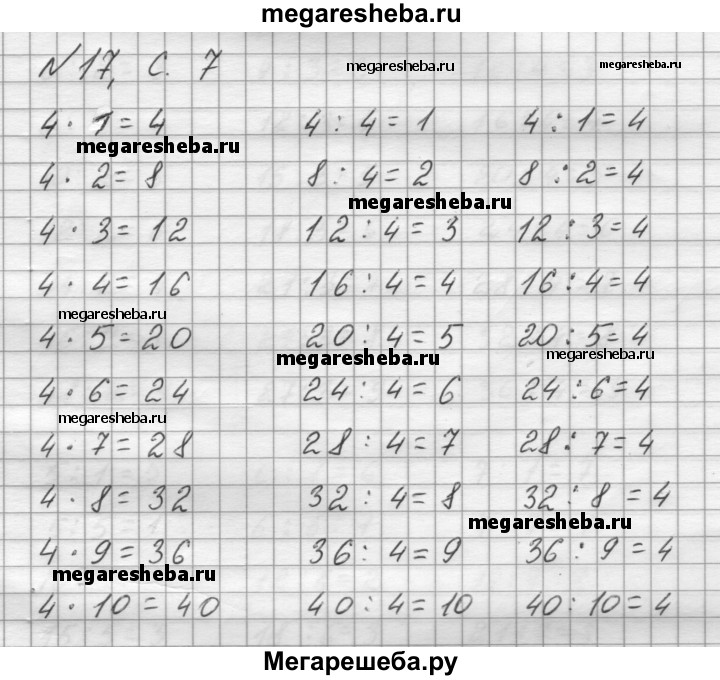 megaresheba.ru
№ 17, с. 7 megaresheba.ru megaresheba.ru
4 · 1 = 4 4 : 4 = 1 4 : 1 = 4
megaresheba.ru
4 · 2 = 8 8 : 4 = 2 8 : 2 = 4
megaresheba.ru
4 · 3 = 12 12 : 4 = 3 12 : 3 = 4
4 · 4 = 16 16 : 4 = 4 16 : 4 = 4
megaresheba.ru
4 · 5 = 20 20 : 4 = 5 20 : 5 = 4
megaresheba.ru megaresheba.ru
4 · 6 = 24 24 : 4 = 6 24 : 6 = 4
megaresheba.ru
4 · 7 = 28 28 : 4 = 7 28 : 7 = 4
4 · 8 = 32 32 : 4 = 8 32 : 8 = 4
megaresheba.ru
4 · 9 = 36 36 : 4 = 9 36 : 9 = 4
megaresheba.ru
4 · 10 = 40 40 : 4 = 10 40 : 10 = 4
Мегарешеба.ру